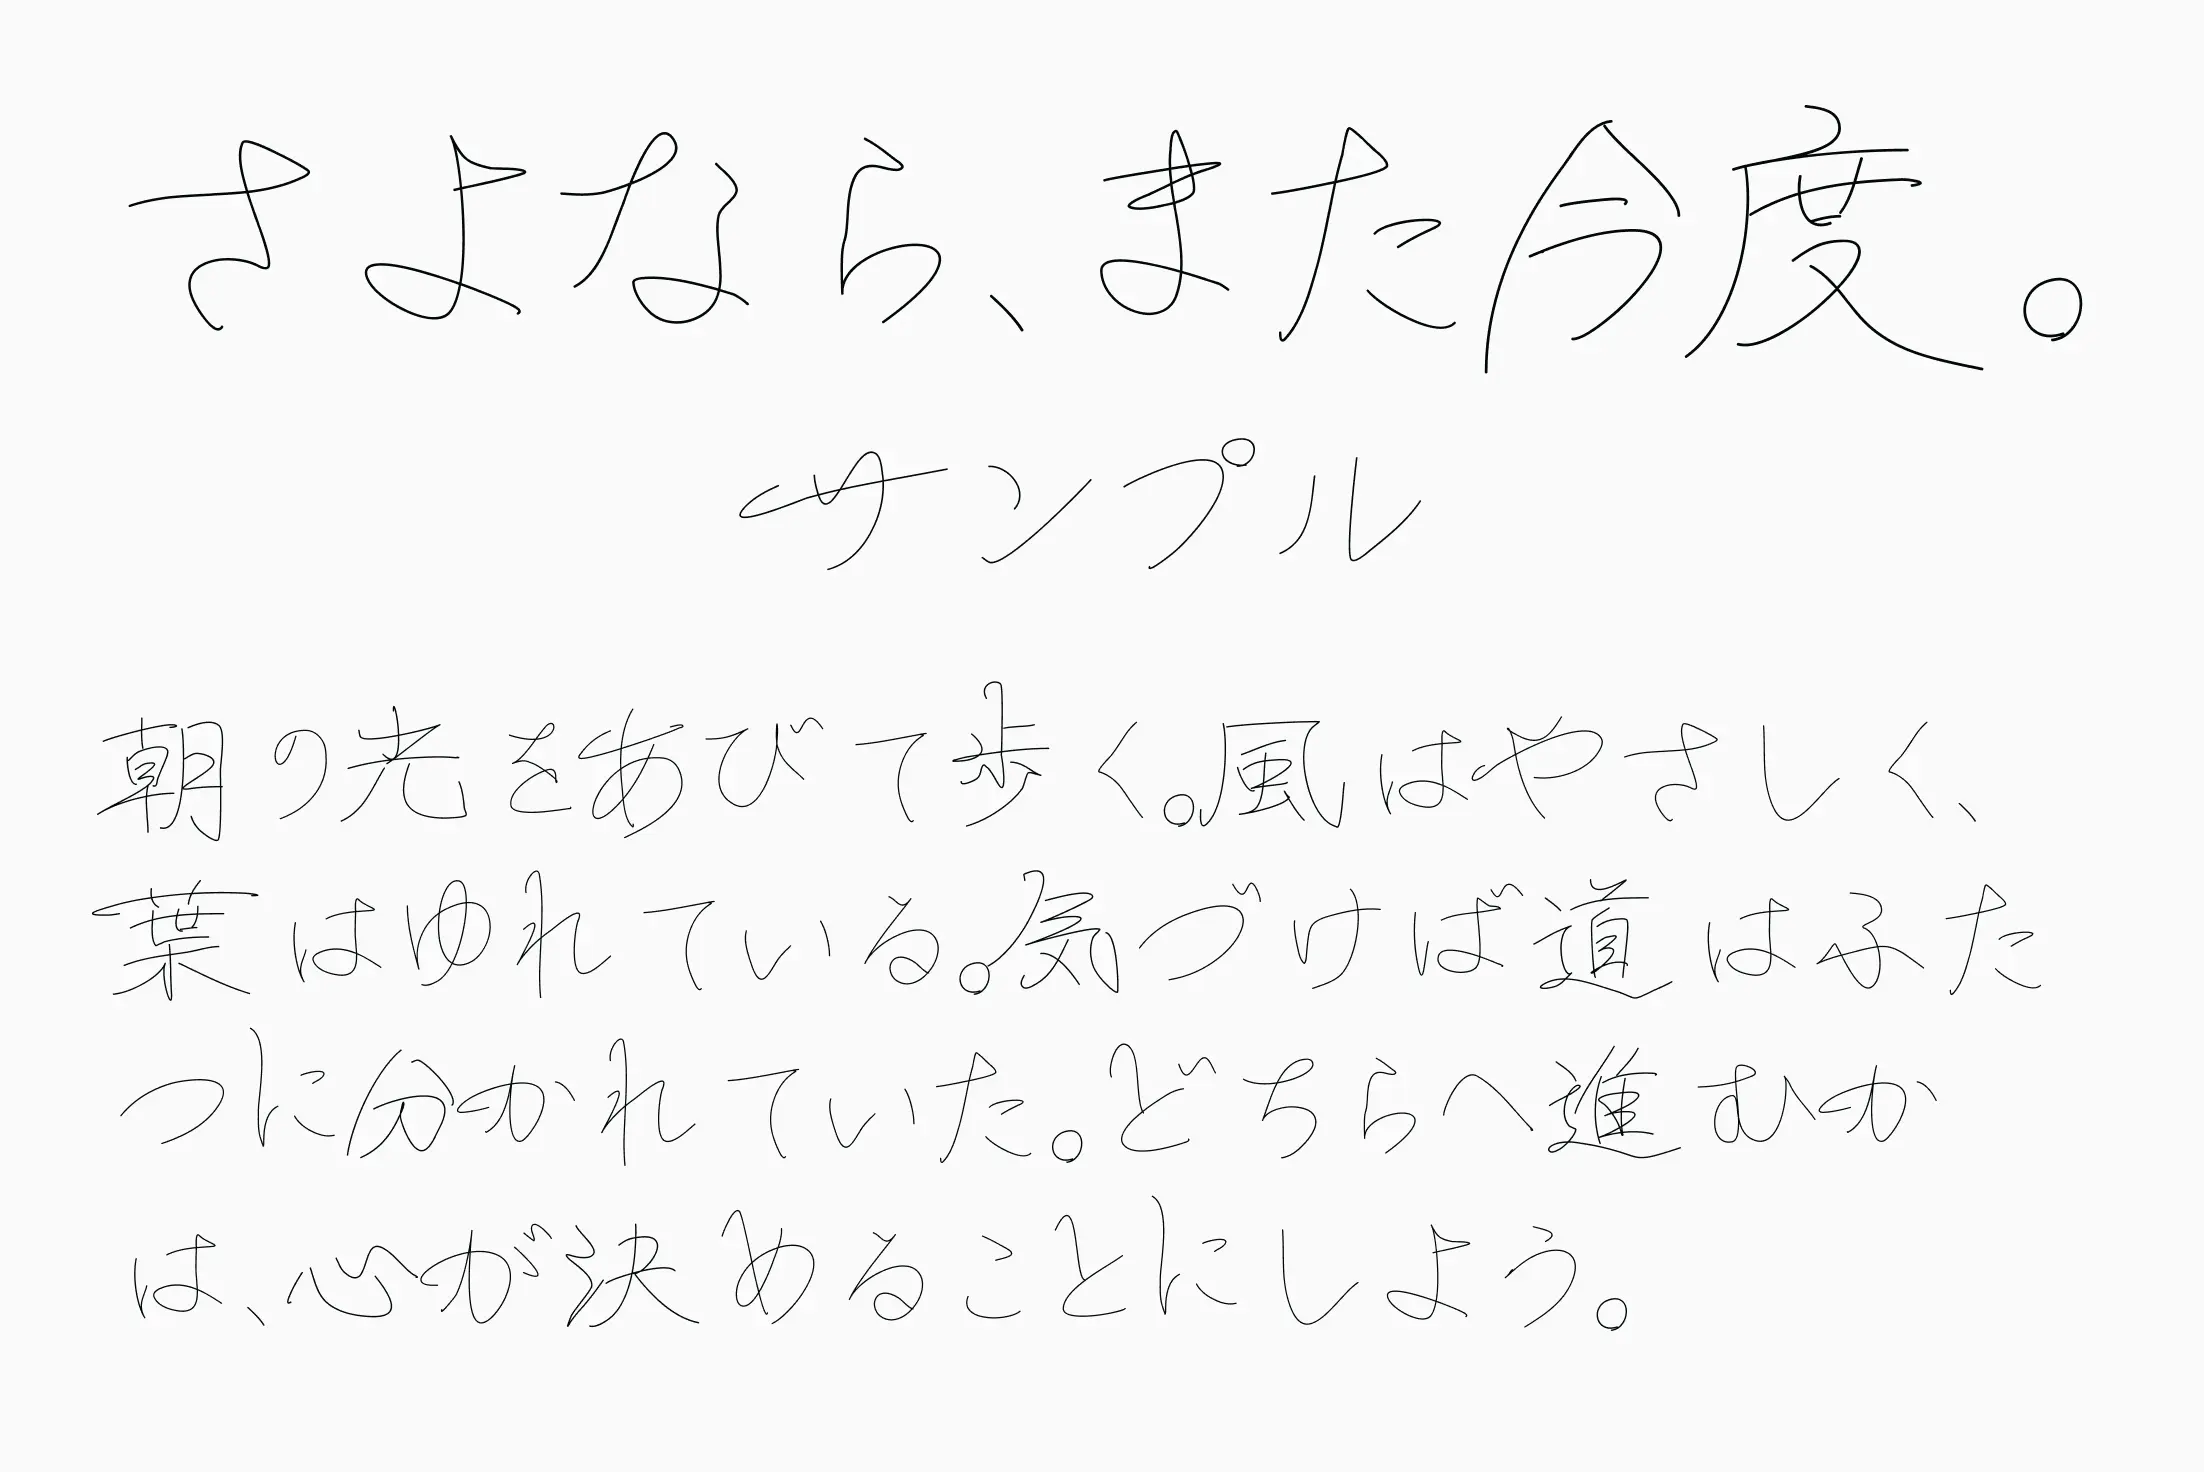 さよなら、また今度。
サンプル
朝の光をあびて歩く。風はやさしく、
葉はゆれている。気づけば道はふた
つに分かれていた。どちらへ進むか
は、心が決めることにしよう。